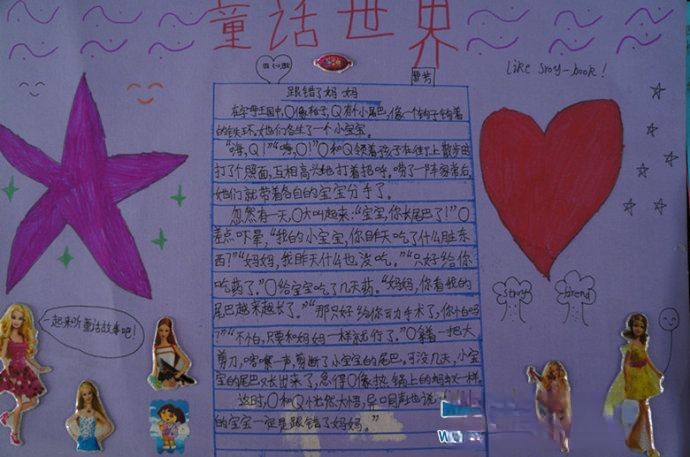 童话世界
Like srory-book!
跟错了妈妈
在字母王国中,O像粒子,Q有个小尾巴,像一个钩子钩着
的铁环,她们各生了一个小宝宝。
“嗨,Q!”“嗨,O!”O和Q领着孩子在街上散步时
打了个照面,互相高兴地打着招呼,唠了一阵家常后,
她们就带着各自的宝宝分手了。
忽然有一天,O大叫起来:“宝宝,你长尾巴了!”O
差点吓晕,“我的小宝宝,你昨天吃了什么脏东
西?”“妈妈,我昨天什么也没吃。”“只好给你
吃药了。”O给宝宝吃了几天药。“妈妈,你看我的
尾巴越来越长了。”“那只好给你动手术了,你怕吗
?”“不怕,只要和妈妈一样就行了。”O拿着一把大
剪刀,“咯嚓”一声,剪断了小宝宝的尾巴。可没几天,小宝
宝的尾巴又长出来了,急得O像热锅上的蚂蚁一样。
这时,O和Q才恍然大悟,异口同声地说
的宝宝一定是跟错了妈妈。”
一起来听童话故事吧!
Srory
brend
W